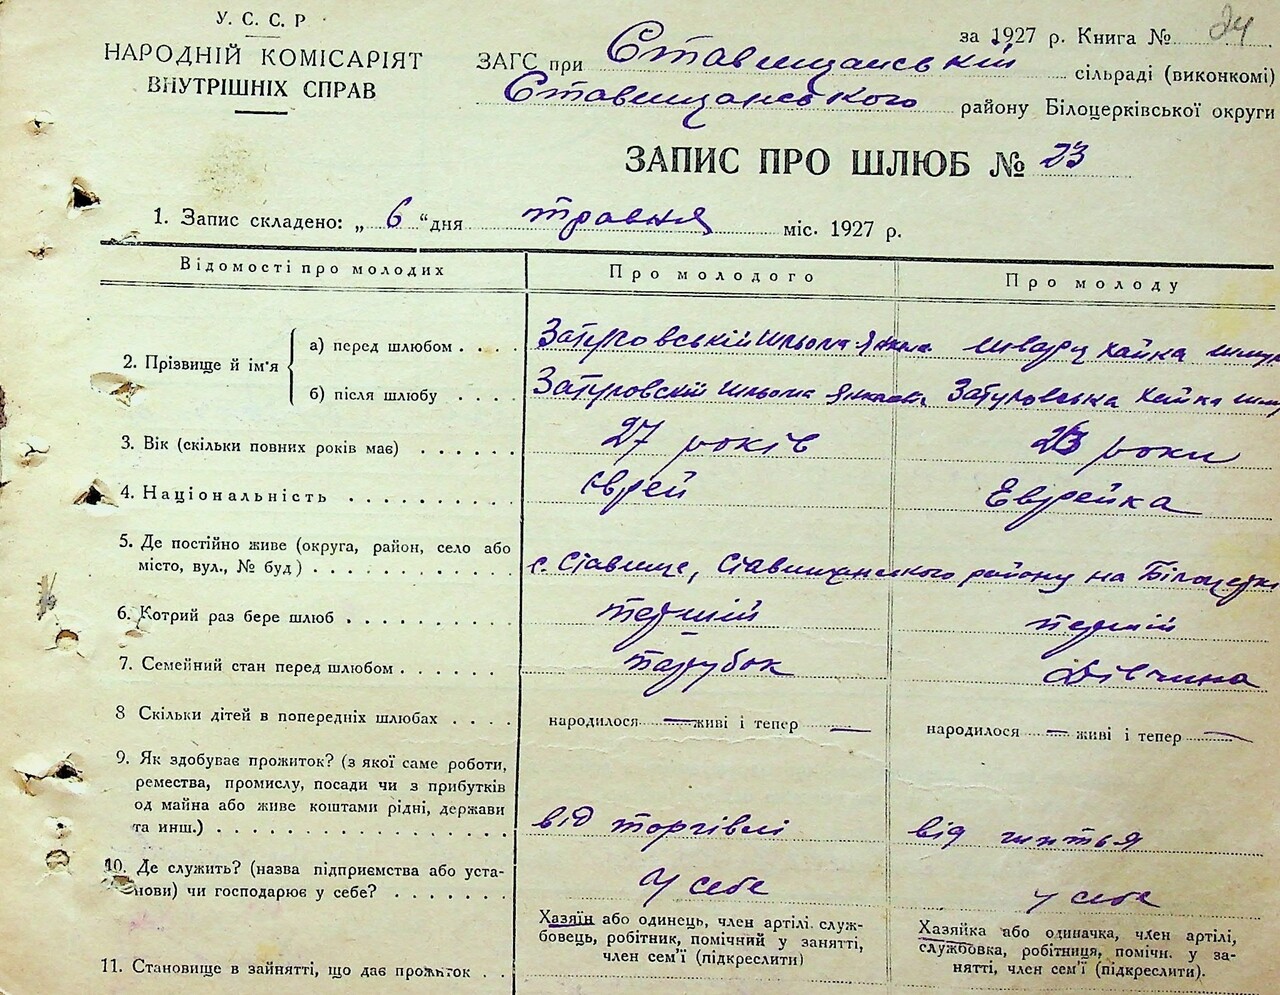 У. С. С. Р
НАРОДНІЙ КОМІСАРІЯТ
ВНУТРІШНІХ СПРАВ
за 1927 р. Книга № 24
ЗАГС при Ставищанській сільраді (виконкомі)
Ставищанського району Білоцерківської округи
ЗАПИС ПРО ШЛЮБ № 23
1. Запис складено: „ 6 “ дня травня міс. 1927 р.
Відомості про молодих Про молодого Про молоду
2. Прізвище й ім'я
а) перед шлюбом . . . . Затуловській Шльома Янкел Шварц Хайка Шмул
б) після шлюбу . . . . Затуловскій Шльома Янкелев Затуловська Хайка Шму
3. Вік (скільки повних років має) . . . . . . 27 років 23 роки
4. Національність . . . . . . . . . . Єврей Еврейка
5. Де постійно живе (округа, район, село або
місто, вул., № буд) . . . . . . . . . . . . с. Ставище, Ставищанського району на Білоцерк
6. Котрий раз бере шлюб . . . . . . . . . . перший перший
7. Семейний стан перед шлюбом . . . . . . . парубок Дівчина
8 Скільки дітей в попередніх шлюбах . . . . народилося — живі і тепер — народилося — живі і тепер —
9. Як здобуває прожиток? (з якої саме роботи,
ремества, промислу, посади чи з прибутків
од майна або живе коштами рідні, держави
та инш.) . . . . . . . . . . . . . . . . . від торгівлі від шиття
10. Де служить? (назва підприємства або уста-
нови) чи господарює у себе? . . . . . . . У себе у себе
11. Становище в зайнятті, що дає прожиток . .
Хазяїн або одинець, член артілі служ-
бовець, робітник, помічний у занятті,
член сем'ї (підкреслити)
Хазяйка або одиначка, член артілі,
службовка, робітниця, помічн. у за-
нятті, член сем'ї (підкреслити).